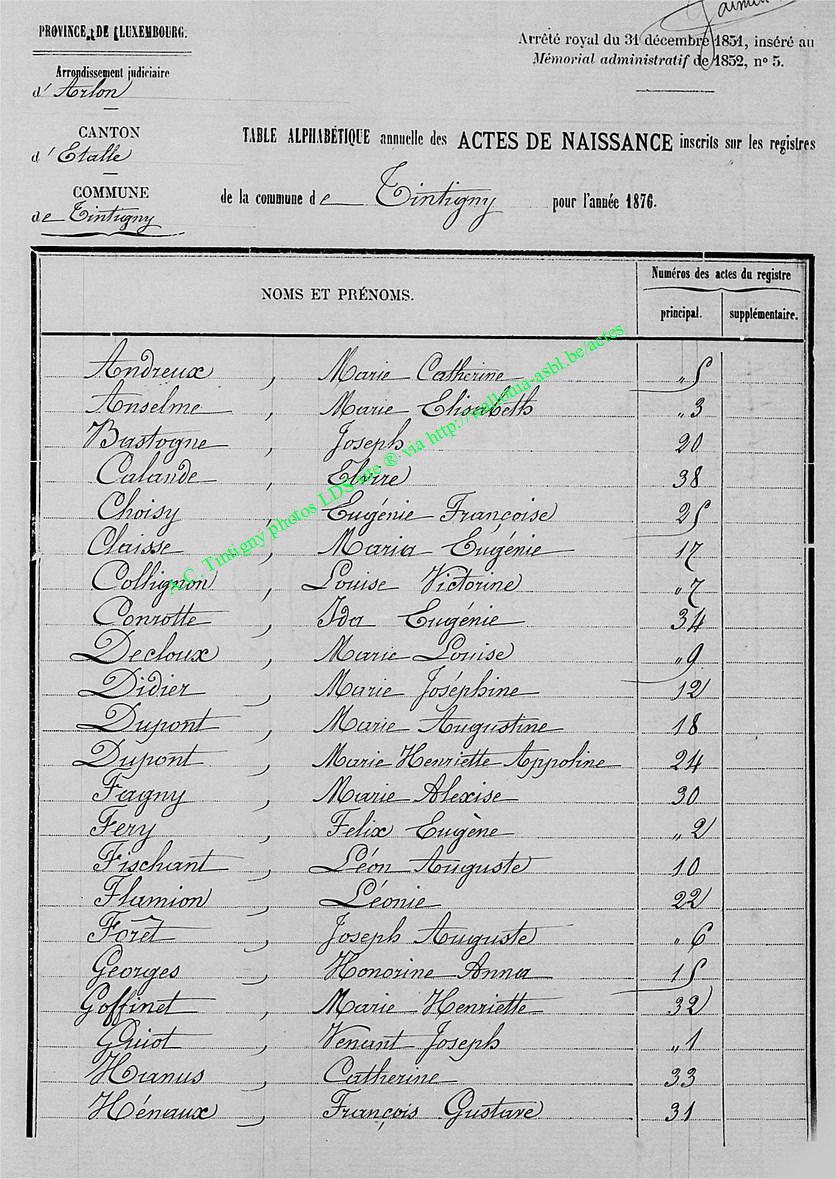 PROVINCE DE LUXEMBOURG.
Arrondissement judiciaire
d'Arlon
CANTON
d'Etalle
COMMUNE
de Tintigny
Arrêté royal du 31 décembre 1851, inséré au
Mémorial administratif de 1852, nº 5.
TABLE ALPHABÉTIQUE annuelle des ACTES DE NAISSANCE inscrits sur les registres
de la commune de Tintigny pour l'année 1876.
NOMS ET PRÉNOMS.
Numéros des actes du registre
principal. supplémentaire.
Andreux, Marie Catherine "5
Anselme, Marie Elisabeth "3
Bastogne, Joseph 20
Calande, Elvire 38
Choisy, Eugénie Françoise 25
Claisse, Maria Eugénie 17
Collignon, Louise Victorine "7
Conrotte, Ida Eugénie 34
Decloux, Marie Louise "9
Didier, Marie Joséphine 12
Dupont, Marie Augustine 18
Dupont, Marie Henriette Appoline 24
Fagny, Marie Alexise 30
Fery, Felix Eugène "2
Fischant, Léon Auguste 10
Flamion, Léonie 22
Forêt, Joseph Auguste "6
Georges, Honorine Anna 15
Goffinet, Marie Henriette 32
Guiot, Venant Joseph "1
Hanus, Catherine 33
Hénaux, François Gustave 31
A.C. Tintigny photos LDS site ® via http://wallonia-asbl.be/actes